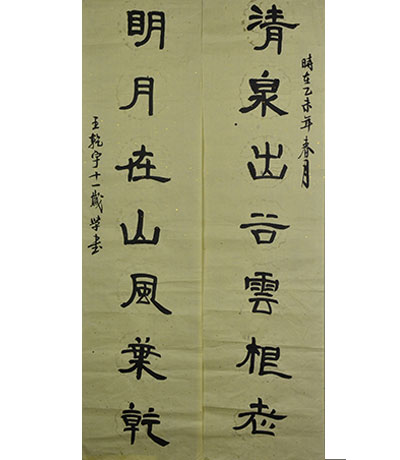 時在乙未年春月
清泉出谷雲根老
明月在山風葉乾
王乾宇十一歲學書